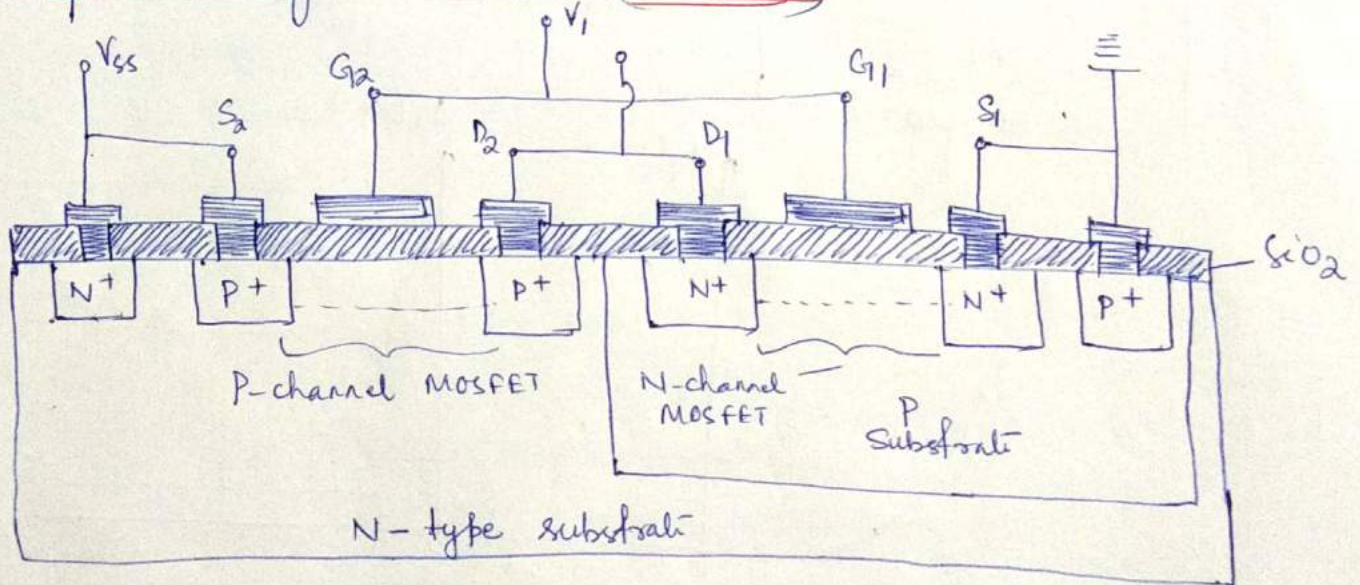 V1
Vss
G2
G1
S2
D2
D1
S1
SiO2
N+
P+
P+
N+
N+
P+
P-channel MOSFET
N-channel
MOSFET
P
Substrate
N-type substrate